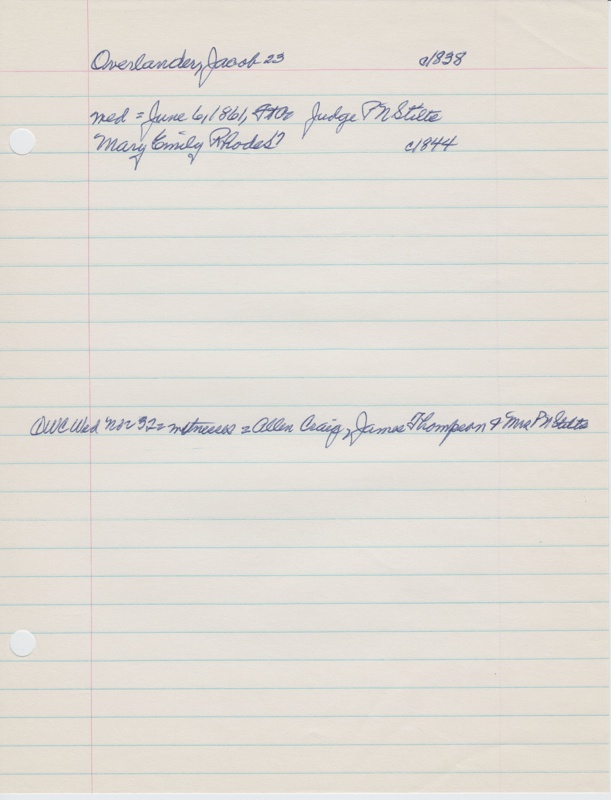 Overlander, Jacob 23 c1838
wed = June 6, 1861, Judge P N Stilts
Mary Emily Rhodes 17 c1844
OWC Wed No 32 = witnesses = Allen Craig, James Thompson & Mrs P N Stilts